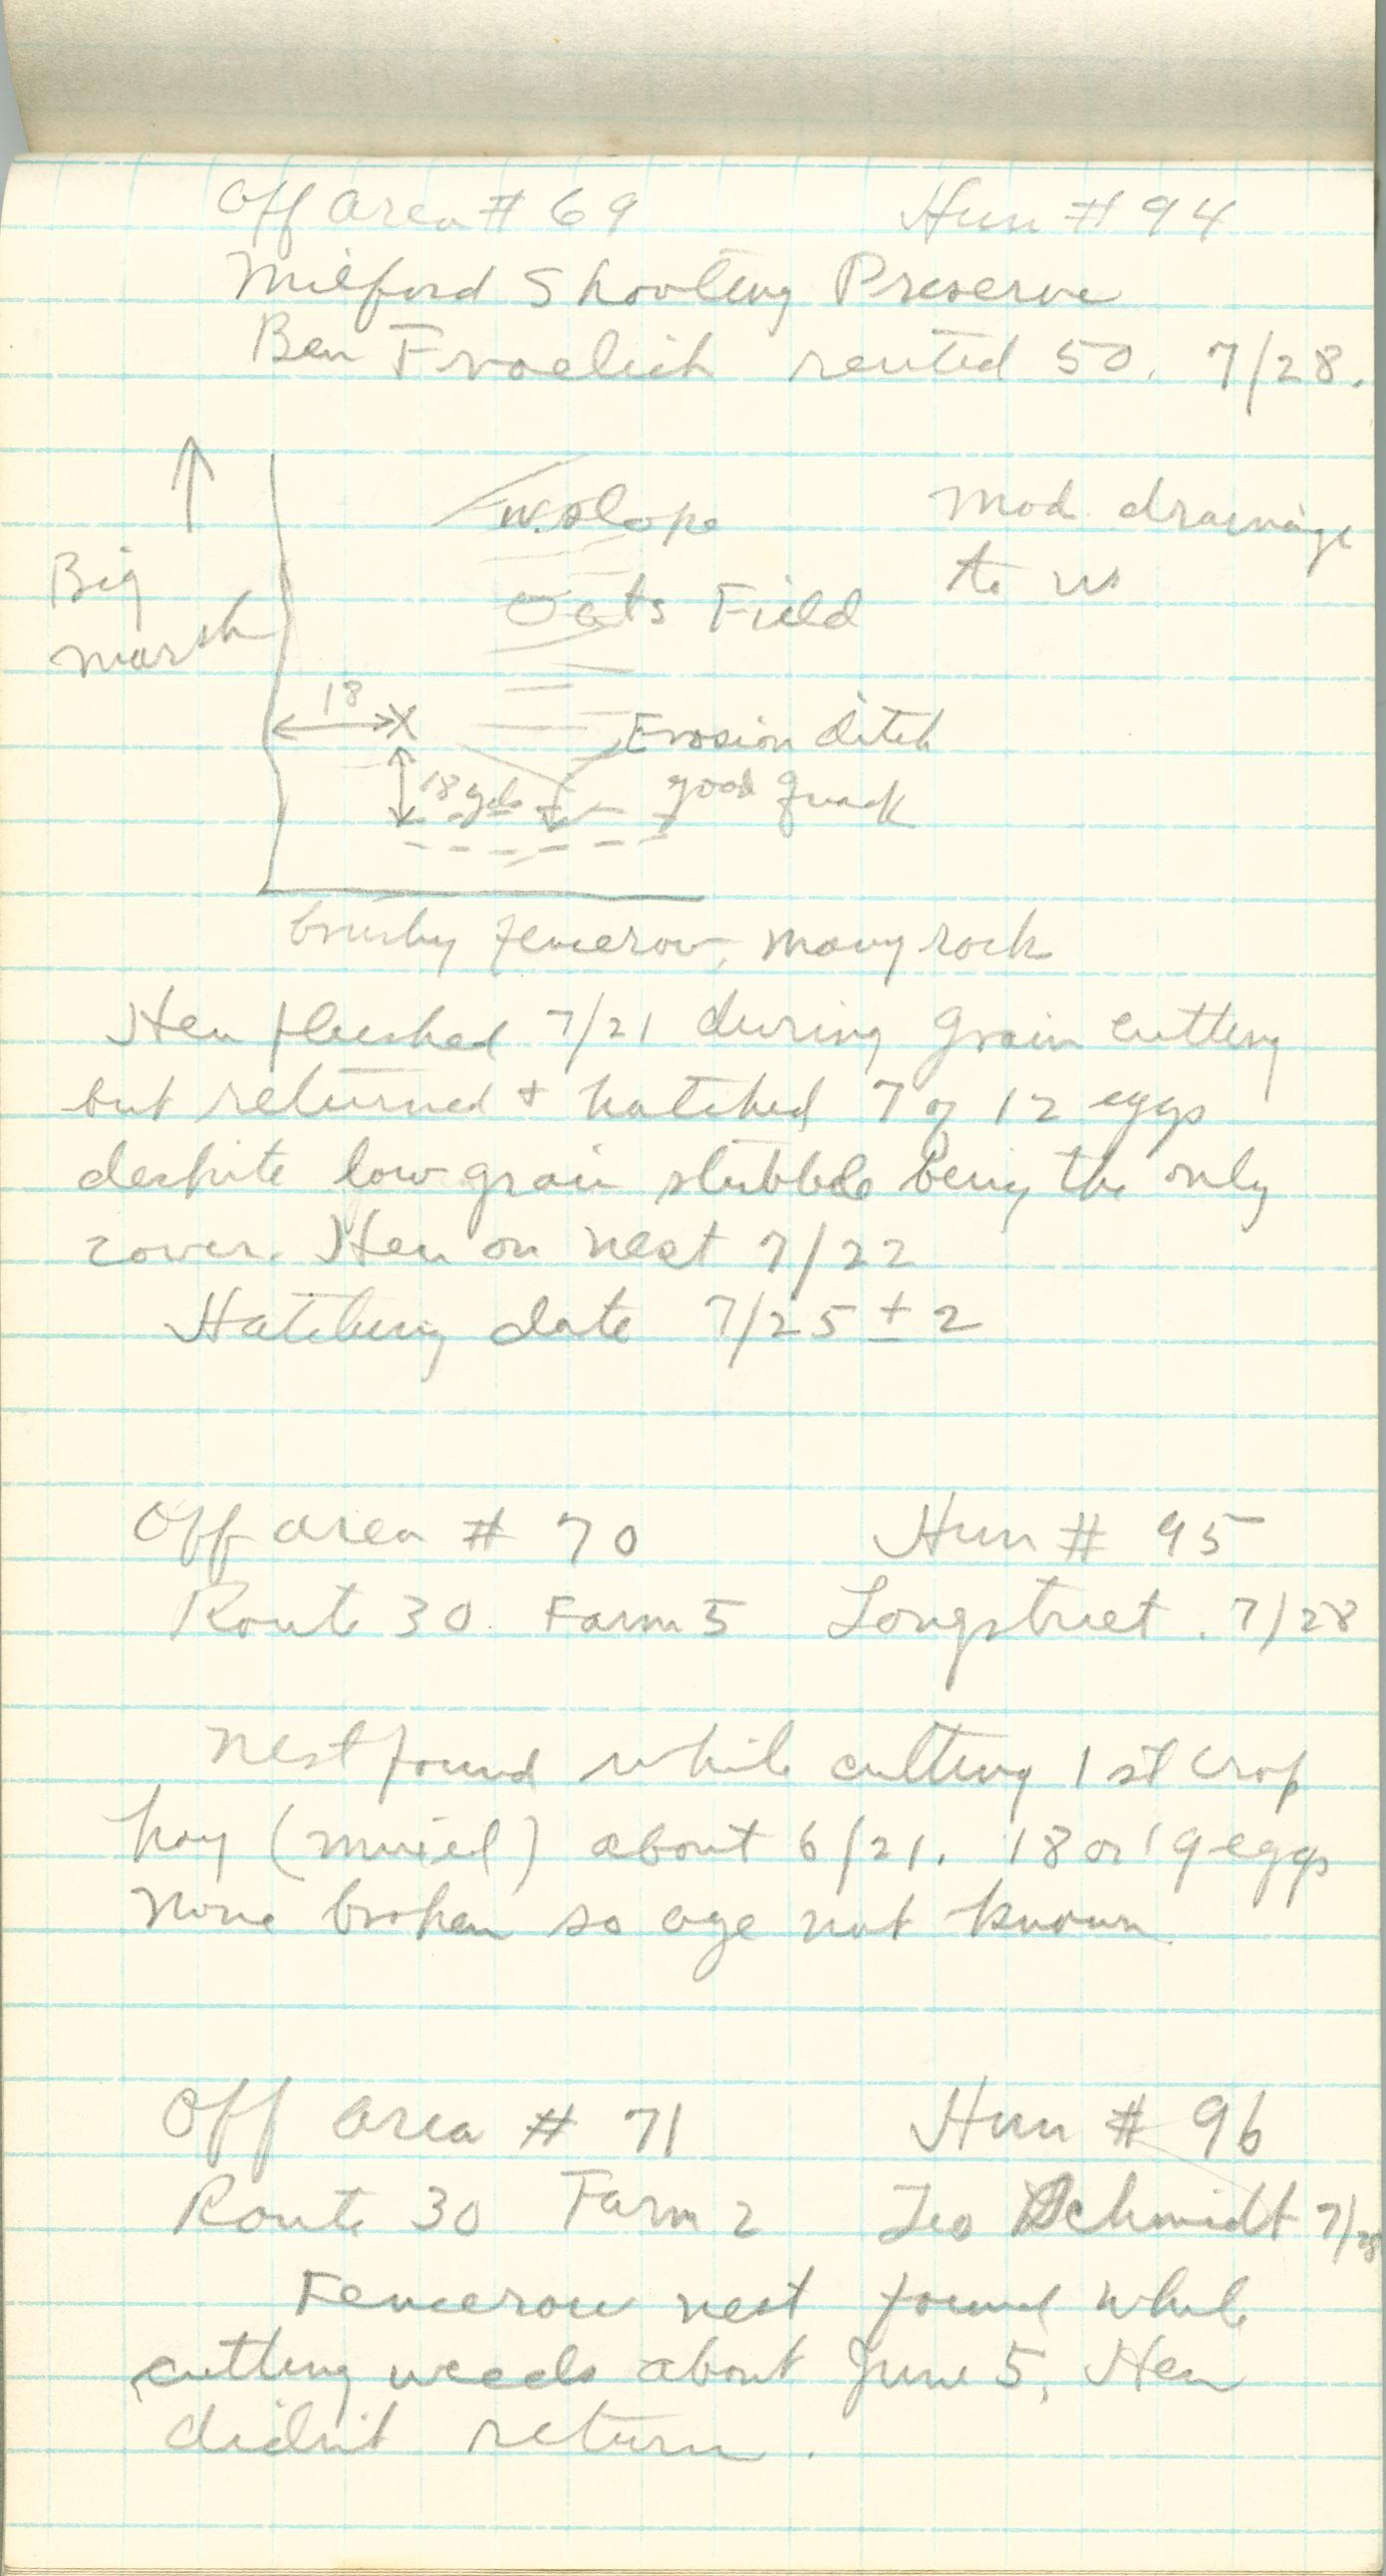 Off area # 69 Hun # 94
Milford Shooting Preserve
Ben Froelich rented 50. 7/28.
W. slope
Mod. drainage
to W
Big
marsh
Oats Field
18
Erosion ditch
18 yds
good quack
brushy fencerow, many rock
Hen flushed 7/21 during grain cutting
but returned + hatched 7 of 12 eggs
despite low grain stubble being the only
cover. Hen on nest 7/22
Hatching date 7/25 ± 2
Off area # 70 Hun # 95
Route 30 Farm 5 Longstreet. 7/28
Nest found while cutting 1st crop
hay (mixed) about 6/21. 18 or 19 eggs
None broken so age not known
Off area # 71 Hun # 96
Route 30 Farm 2 Leo Schmidt 7/28
Fencerow nest found while
cutting weeds about June 5, Hen
didn't return.